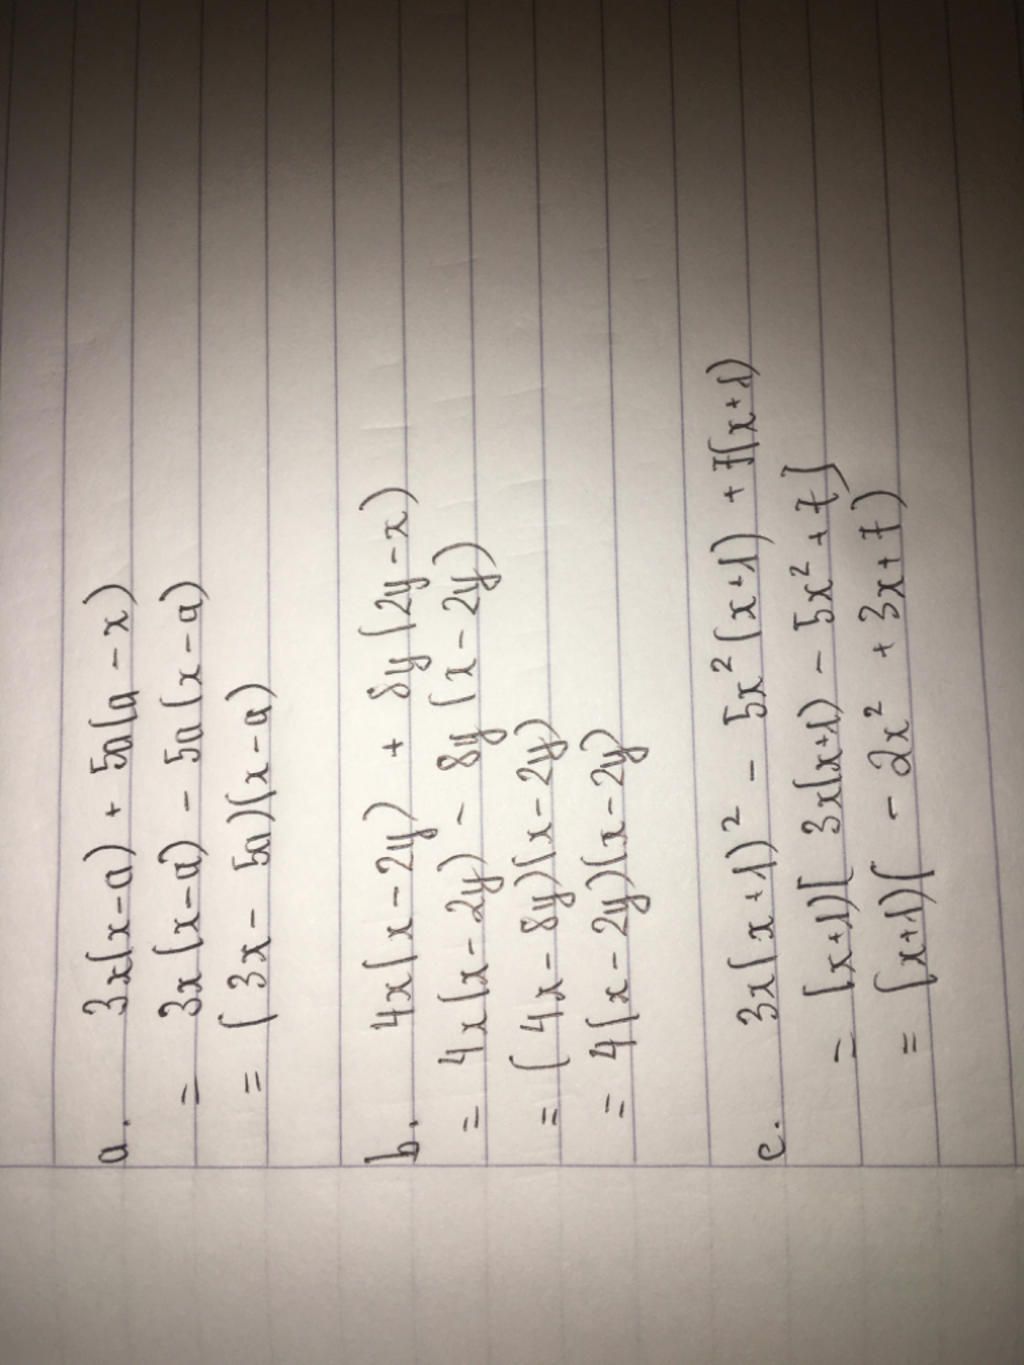 a. 3x(x-a) + 5a(a-x)
= 3x(x-a) - 5a(x-a)
= (3x - 5a)(x-a)
b. 4x(x-2y) + 8y(2y-x)
= 4x(x-2y) - 8y(x-2y)
= (4x-8y)(x-2y)
= 4(x-2y)(x-2y)
c. 3x(x+1)² - 5x²(x+1) + 7(x+1)
= (x+1)[3x(x+1) - 5x² + 7]
= (x+1)(-2x² + 3x + 7)